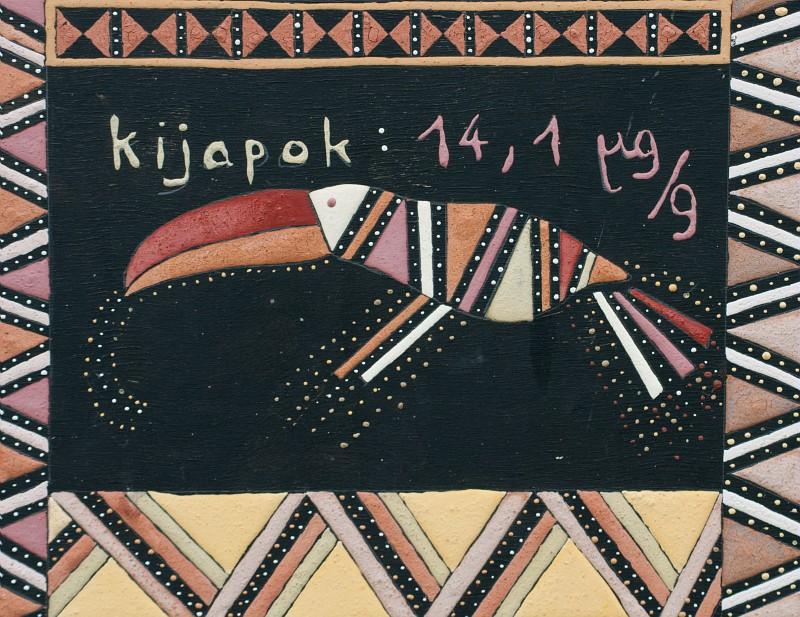 kijapok : 14,1 µg/g